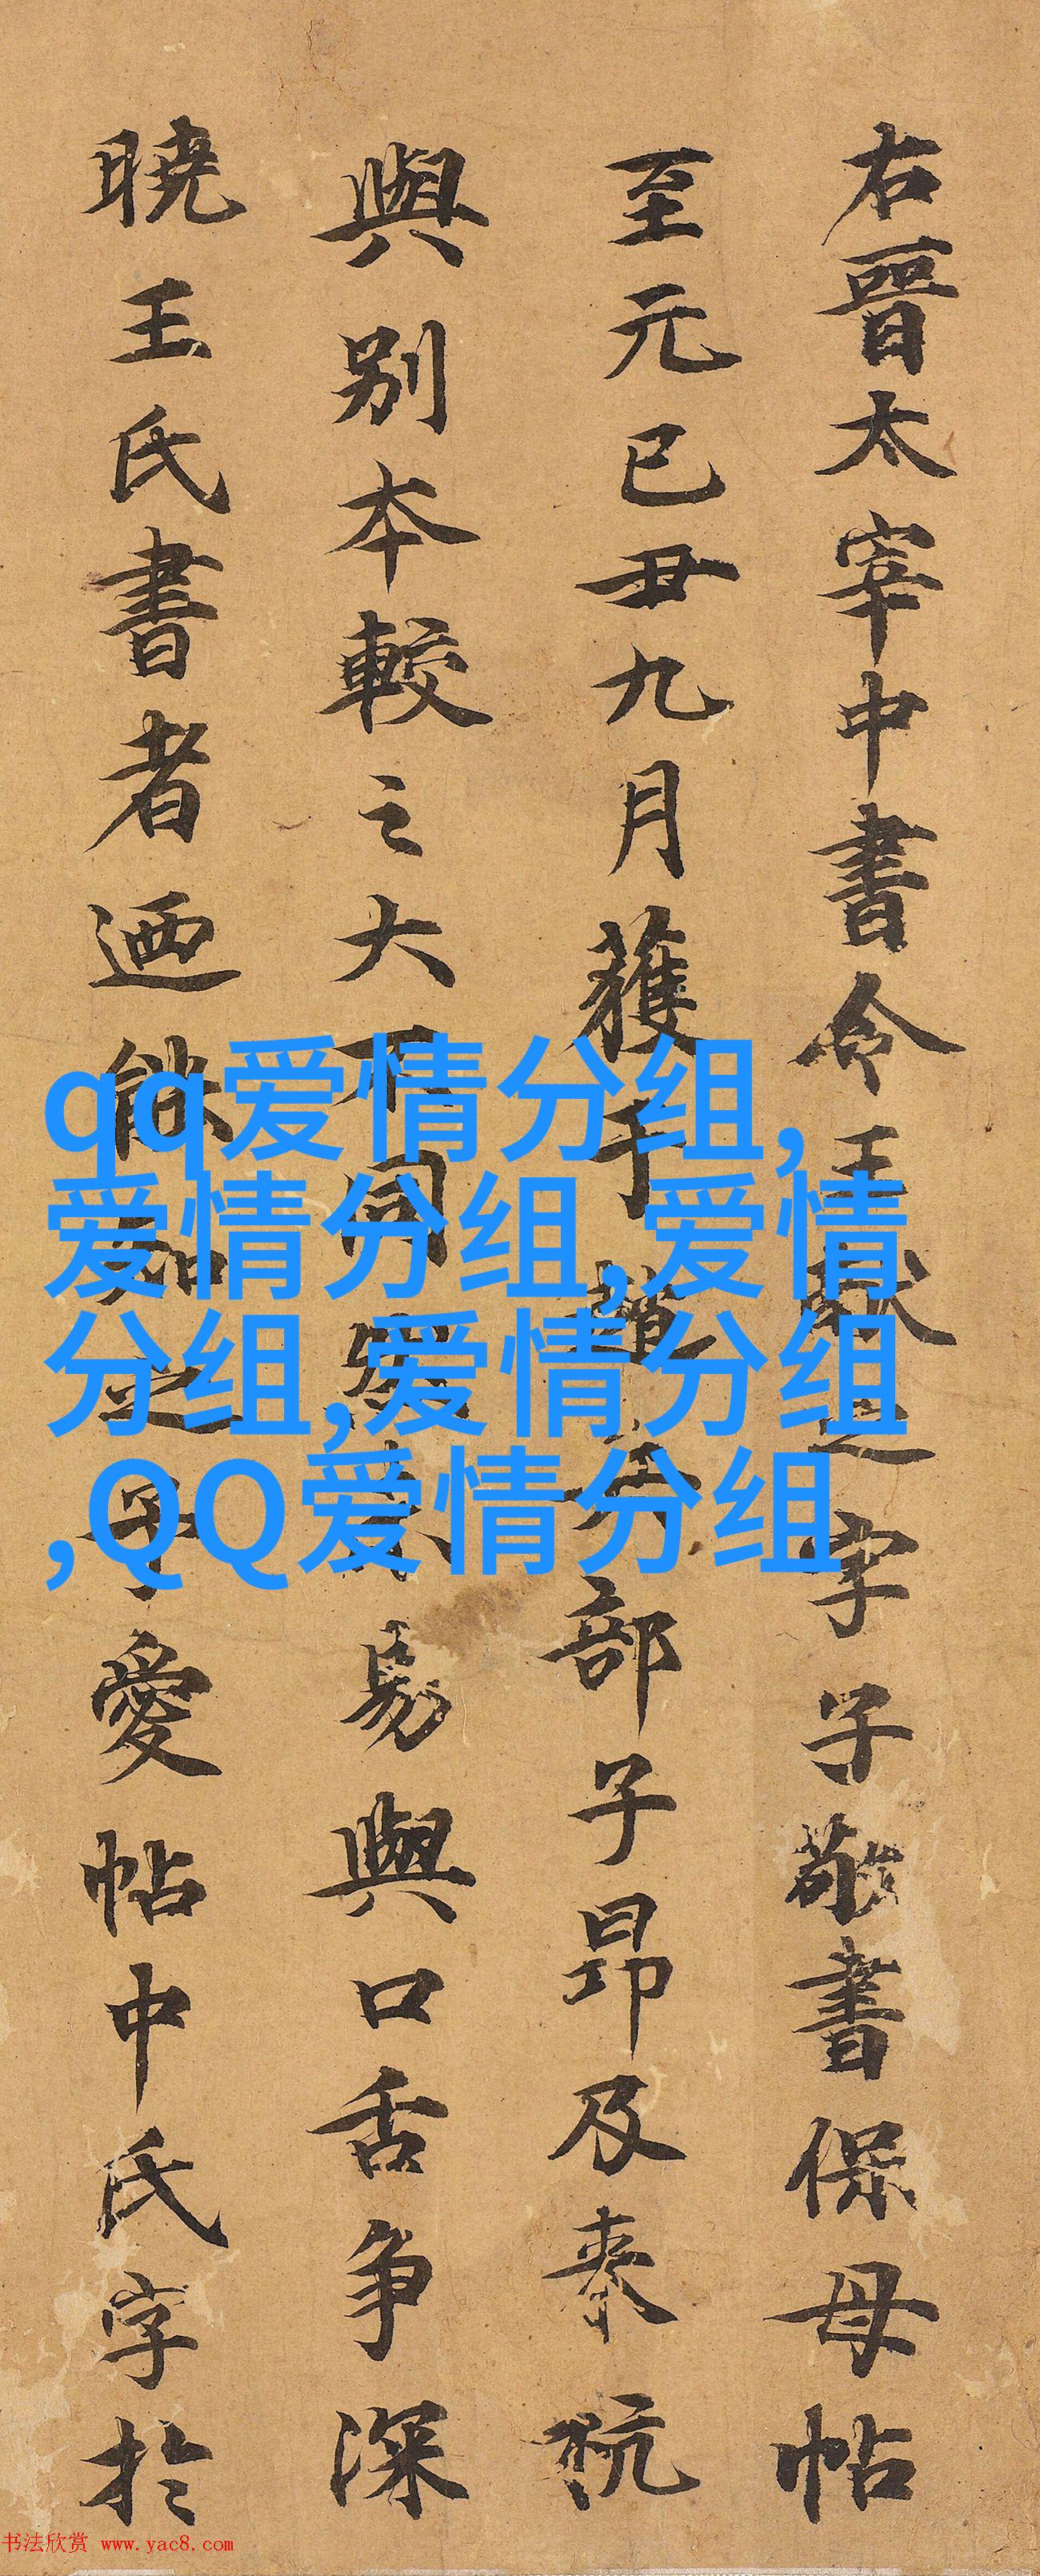 右晉太宰中書令王獻之字子敬書保母帖
至元已丑九月獲于趙工部子昂及來杭
與别本較之大不同未易與口舌争深
曉王氏書者迺能知之予愛帖中氏字於
qq爱情分组,
爱情分组,爱情
分组,爱情分组
,QQ爱情分组
书法欣赏 www.yac8.com